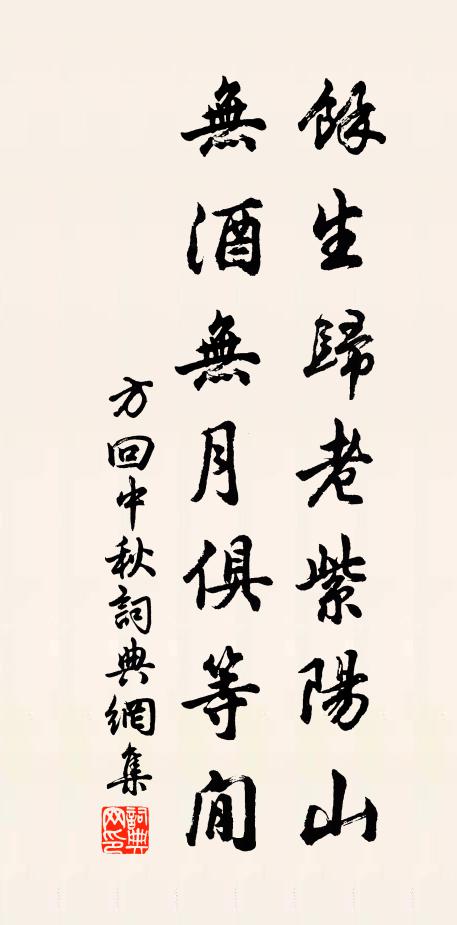 餘生歸老紫陽山
無酒無月俱等閒
方回中秋詞典網集
詞典
网印